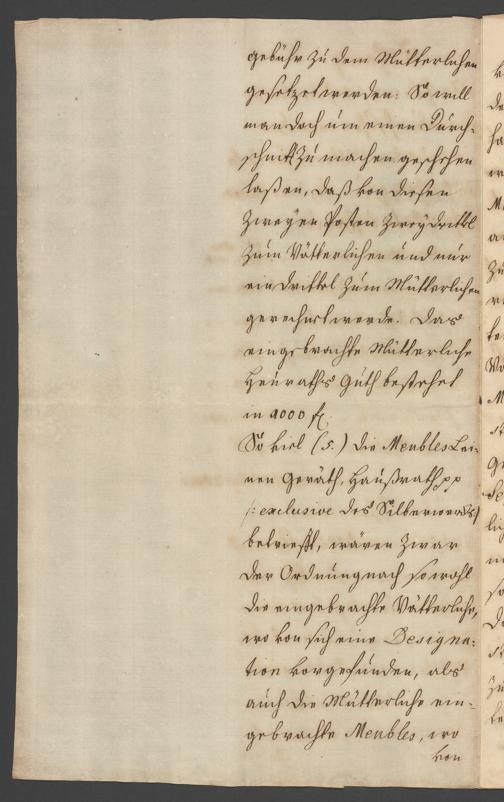 gebühr zu dem Mütterlichen
gesetzet werden: So will
man doch um einen Durch-
schnitt zu machen geschehen
laßen, daß von diesen
zweyen Posten zwey drittl
zum Vätterlichen und nur
ein drittel zum Mütterlichen
gerechnet werde. Das
eingebrachte Mütterliche
Heuraths Guth bestehet
in 9000 f.
So viel (5.) die Meubles Lei-
nen Geräth, Haußrath pp
/: exclusive des Silberwercks :/
betriefft, wären zwar
der Ordnung nach sowohl
die eingebrachte Vätterliche,
wo von sich eine Designa-
tion vorgefunden, als
auch die Mütterliche ein-
gebrachte Meubles, wo
von